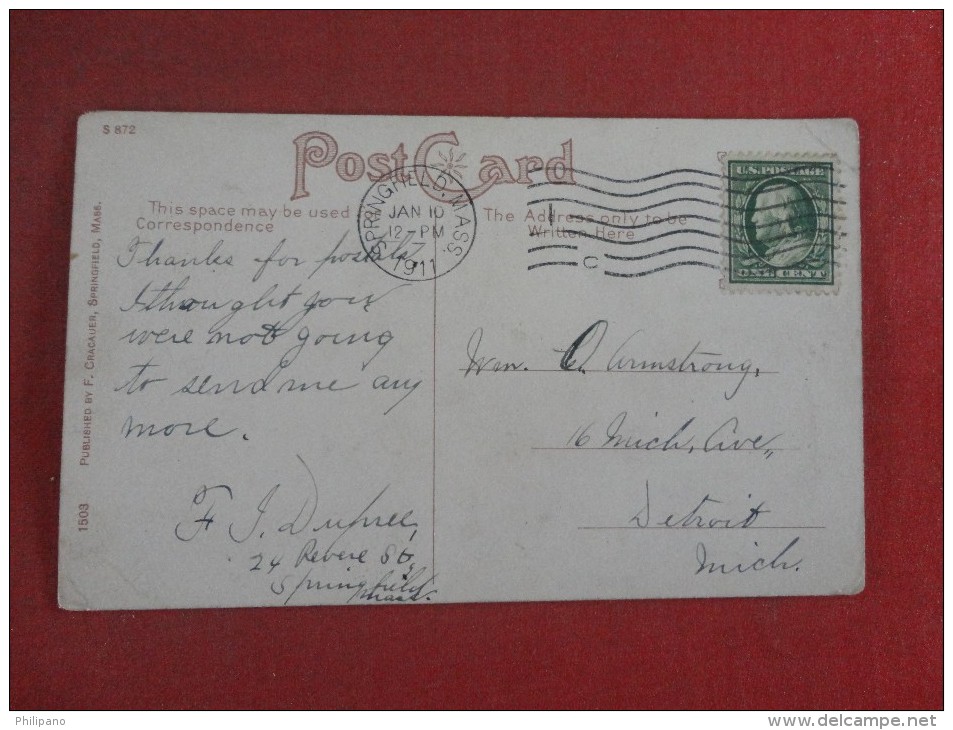 S 872
Post Card
This space may be used
Correspondence
The Address only to be
Written Here
SPRINGFIELD, MASS.
JAN 10
12-PM
1911
C
U.S. POSTAGE
Thanks for postal,
I thought you
were not going
to send me any
more.
F I. Dupree,
24 Revere St,
Springfield
Mass.
Wm. O. Armstrong,
16 Mich, Ave,,
Detroit
Mich.
PUBLISHED BY F. CRACAUER, SPRINGFIELD, MASS.
1503
Philipano
http://www.delcampe.net